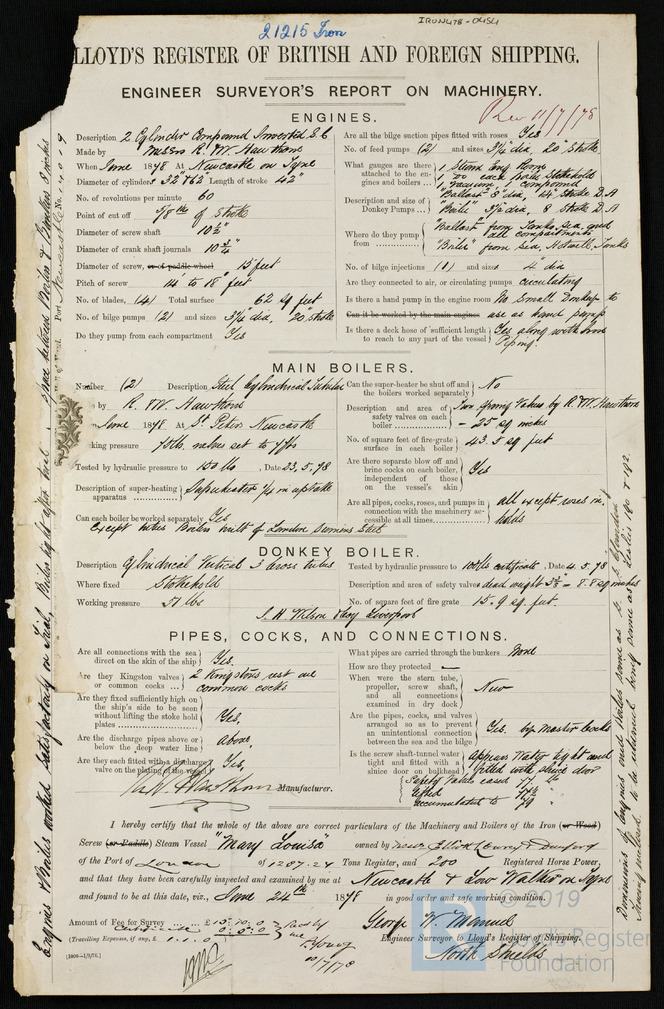 IRON478-0454
21215 Iron
LLOYD'S REGISTER OF BRITISH AND FOREIGN SHIPPING.
ENGINEER SURVEYOR'S REPORT ON MACHINERY.
Rec 11/7/78
ENGINES.
Description 2 Cylinder Compound Inverted S.C
Made by Messrs R. W. Hawthorn
When June 1878 At Newcastle on Tyne
Diameter of cylinders 32 & 62 Length of stroke 42"
No. of revolutions per minute 60
Point of cut off 5/8th of Stroke
Diameter of screw shaft 10½"
Diameter of crank shaft journals 10¾"
Diameter of screw, or of paddle wheel 15 feet
Pitch of screw 14' to 18' feet
No. of blades, (4) Total surface 62 sq feet
No. of bilge pumps (2) and sizes 3¼ dia, 20" stroke
Do they pump from each compartment Yes
Are all the bilge suction pipes fitted with roses Yes
No. of feed pumps (2) and sizes 3¼ dia, 20" stroke
What gauges are there attached to the engines and boilers 1 Steam Eng Room
1 do each boiler Stokehold
1 Vacuum, 1 compound
Description and size of Donkey Pumps "Ballast" 8" dia, 14" Stroke D.A
"Boiler" 8 Stroke D.A
Where do they pump from "Ballast" from Tanks, sea, and all compartments
"Boiler" from sea, Hotwell, Tanks
No. of bilge injections (1) and sizes 4" dia
Are they connected to air, or circulating pumps circulating
Is there a hand pump in the engine room No small Donkey to
Can it be worked by the main engines use as hand pump
Is there a deck hose of sufficient length to reach to any part of the vessel Yes along with iron Piping.
MAIN BOILERS.
Number (2) Description Steel Cylindrical Tubular
by R. W. Hawthorn
June 1878 At St Peters Newcastle
king pressure 75 lbs, valves set to 77 lbs
Tested by hydraulic pressure to 150 lbs, Date 23.5.78
Description of super-heating apparatus Superheater in uptake
Can each boiler be worked separately Yes
Except tubes Boilers built of Landore Siemens Steel
Can the super-heater be shut off and the boilers worked separately No
Description and area of safety valves on each boiler Two spring Valves by R. W. Hawthorn
= 25 sq inches
No. of square feet of fire-grate surface in each boiler 43.5 sq feet
Are there separate blow off and brine cocks on each boiler, independent of those on the vessel's skin Yes
Are all pipes, cocks, roses, and pumps in connection with the machinery accessible at all times all except roses in holds
DONKEY BOILER.
Description Cylindrical Vertical 3 cross tubes
Where fixed Stokehold
Working pressure 51 lbs
Tested by hydraulic pressure to 100 lbs certificate, Date 4.5.78
Description and area of safety valves dead weight = 8.8 sq inches
No. of square feet of fire grate 15.9 sq feet.
J. H. Wilson & Coy Liverpool
PIPES, COCKS, AND CONNECTIONS.
Are all connections with the sea direct on the skin of the ship Yes.
Are they Kingston valves or common cocks 2 Kingstons rest are common cocks
Are they fixed sufficiently high on the ship's side to be seen without lifting the stoke hold plates Yes,
Are the discharge pipes above or below the deep water line above
Are they each fitted with a discharge valve on the plating of the vessel Yes,
R. W. Hawthorn Manufacturer.
What pipes are carried through the bunkers None
How are they protected —
When were the stern tube, propeller, screw shaft, and all connections examined in dry dock New
Are the pipes, cocks, and valves arranged so as to prevent an unintentional connection between the sea and the bilge Yes. by Master Cocks
Is the screw shaft-tunnel water tight and fitted with a sluice door on bulkhead Appears Water tight and fitted with sluice door
Safety Valves eased 77 lbs
Lifted 77½ "
accumulated to 79 "
I hereby certify that the whole of the above are correct particulars of the Machinery and Boilers of the Iron (or Wood)
Screw (or Paddle) Steam Vessel "Mary Louisa" owned by Messrs Elliott Lowry & Dunford
of the Port of London of 1287.24 Tons Register, and 200 Registered Horse Power,
and that they have been carefully inspected and examined by me at Newcastle & Low Walker on Tyne
and found to be at this date, viz., June 24th 1878 in good order and safe working condition.
Amount of Fee for Survey £15.10.0
Certificate 0.5.0
(Travelling Expenses, if any, £ 1.1.0
Recd by me
Young
10/7/78
George W. Manuel
Engineer Surveyor to Lloyd's Register of Shipping.
North Shields
(1000—1/9/76.)
Port Newcastle No. 14019
Engines & Boilers worked satisfactorily on Trial, Boilers tight after trial, space between Boilers & Bunkers 8 inches
© 2019
Lloyd's Register
Foundation